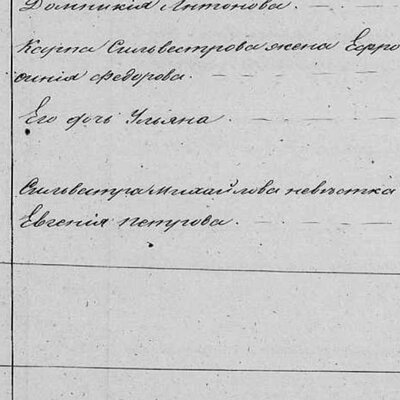 Домникія Антонова.
Карпа Сильвестрова жена Ефро
синія Федорова.
Его дочь Ульяна.
Сильвестра Михайлова невѣстка
Евгенія Петрова.